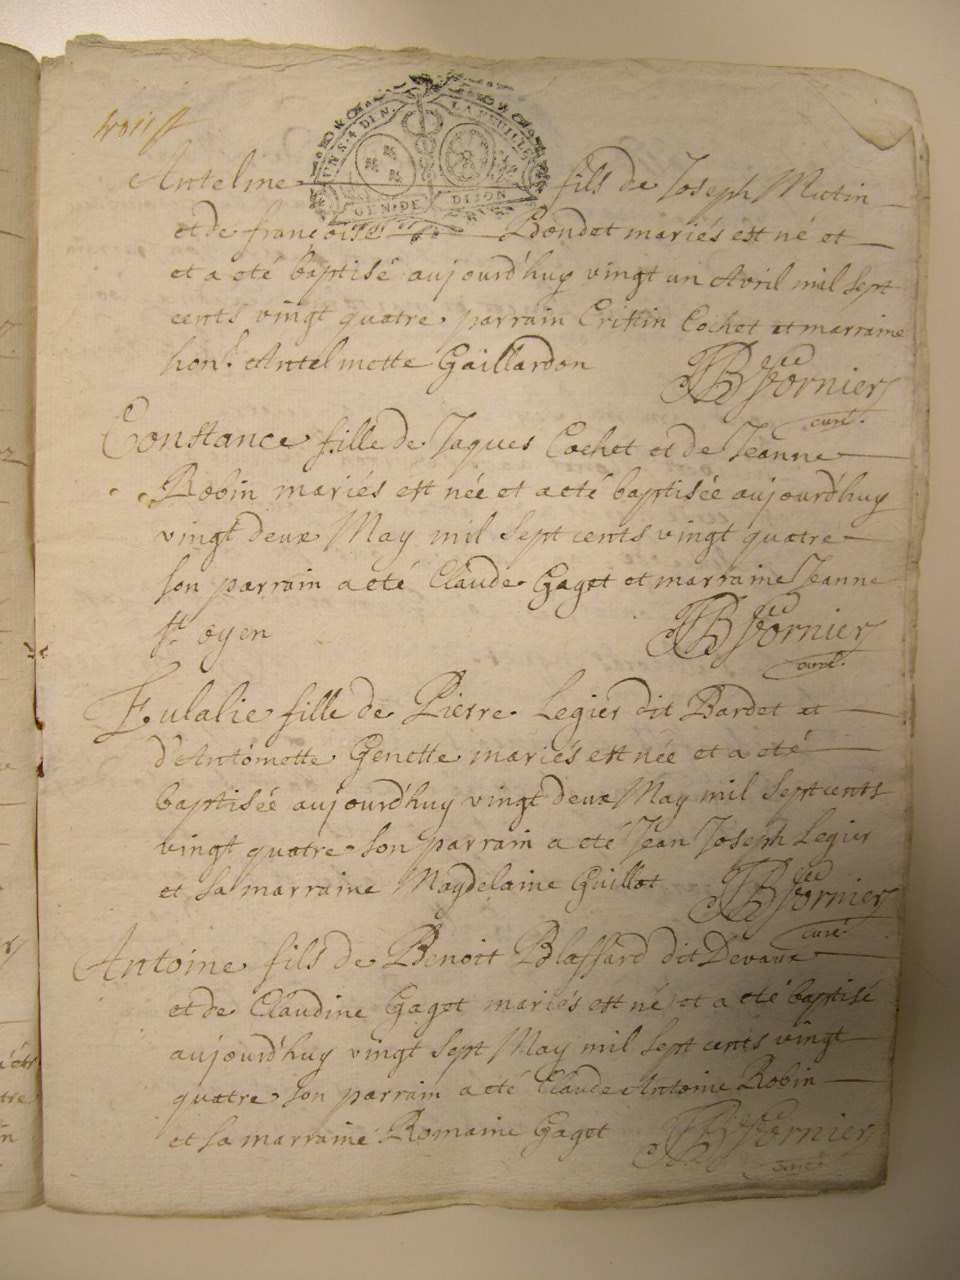 UN S. 4 DEN. LA FEUILLE
GEN. DE DIJON
Antelme fils de Joseph Mutin
et de françoise Bondet mariés est né et
et a eté baptisé aujourd'huy vingt un Avril mil sept
cents vingt quatre parrain Cristin Cochet et marraine
hon.^e Antelmette Gaillardon JB Fornier
curé.
Constance fille de Jaques Cochet et de Jeanne
Robin mariés est née et a eté baptisée aujourd'huy
vingt deux May mil sept cents vingt quatre
son parrain a eté Claude Gaget et marraine Jeanne
S^t. oyen JB Fornier
curé.
Eulalie fille de Pierre Legier dit Bardet et
d'Antoinette Genette mariés est née et a eté
baptisée aujourd'huy vingt deux May mil sept cents
vingt quatre son parrain a eté Jean Joseph Legier
et sa marraine Magdelaine Guillot JB Fornier
curé
Antoine fils de Benoit Blaffard dit Devaux
et de Claudine Gaget mariés est né et a eté baptisé
aujourd'huy vingt sept May mil sept cents vingt
quatre son parrain a eté Claude Antoine Robin
et sa marraine Romaine Gaget JB Fornier
curé